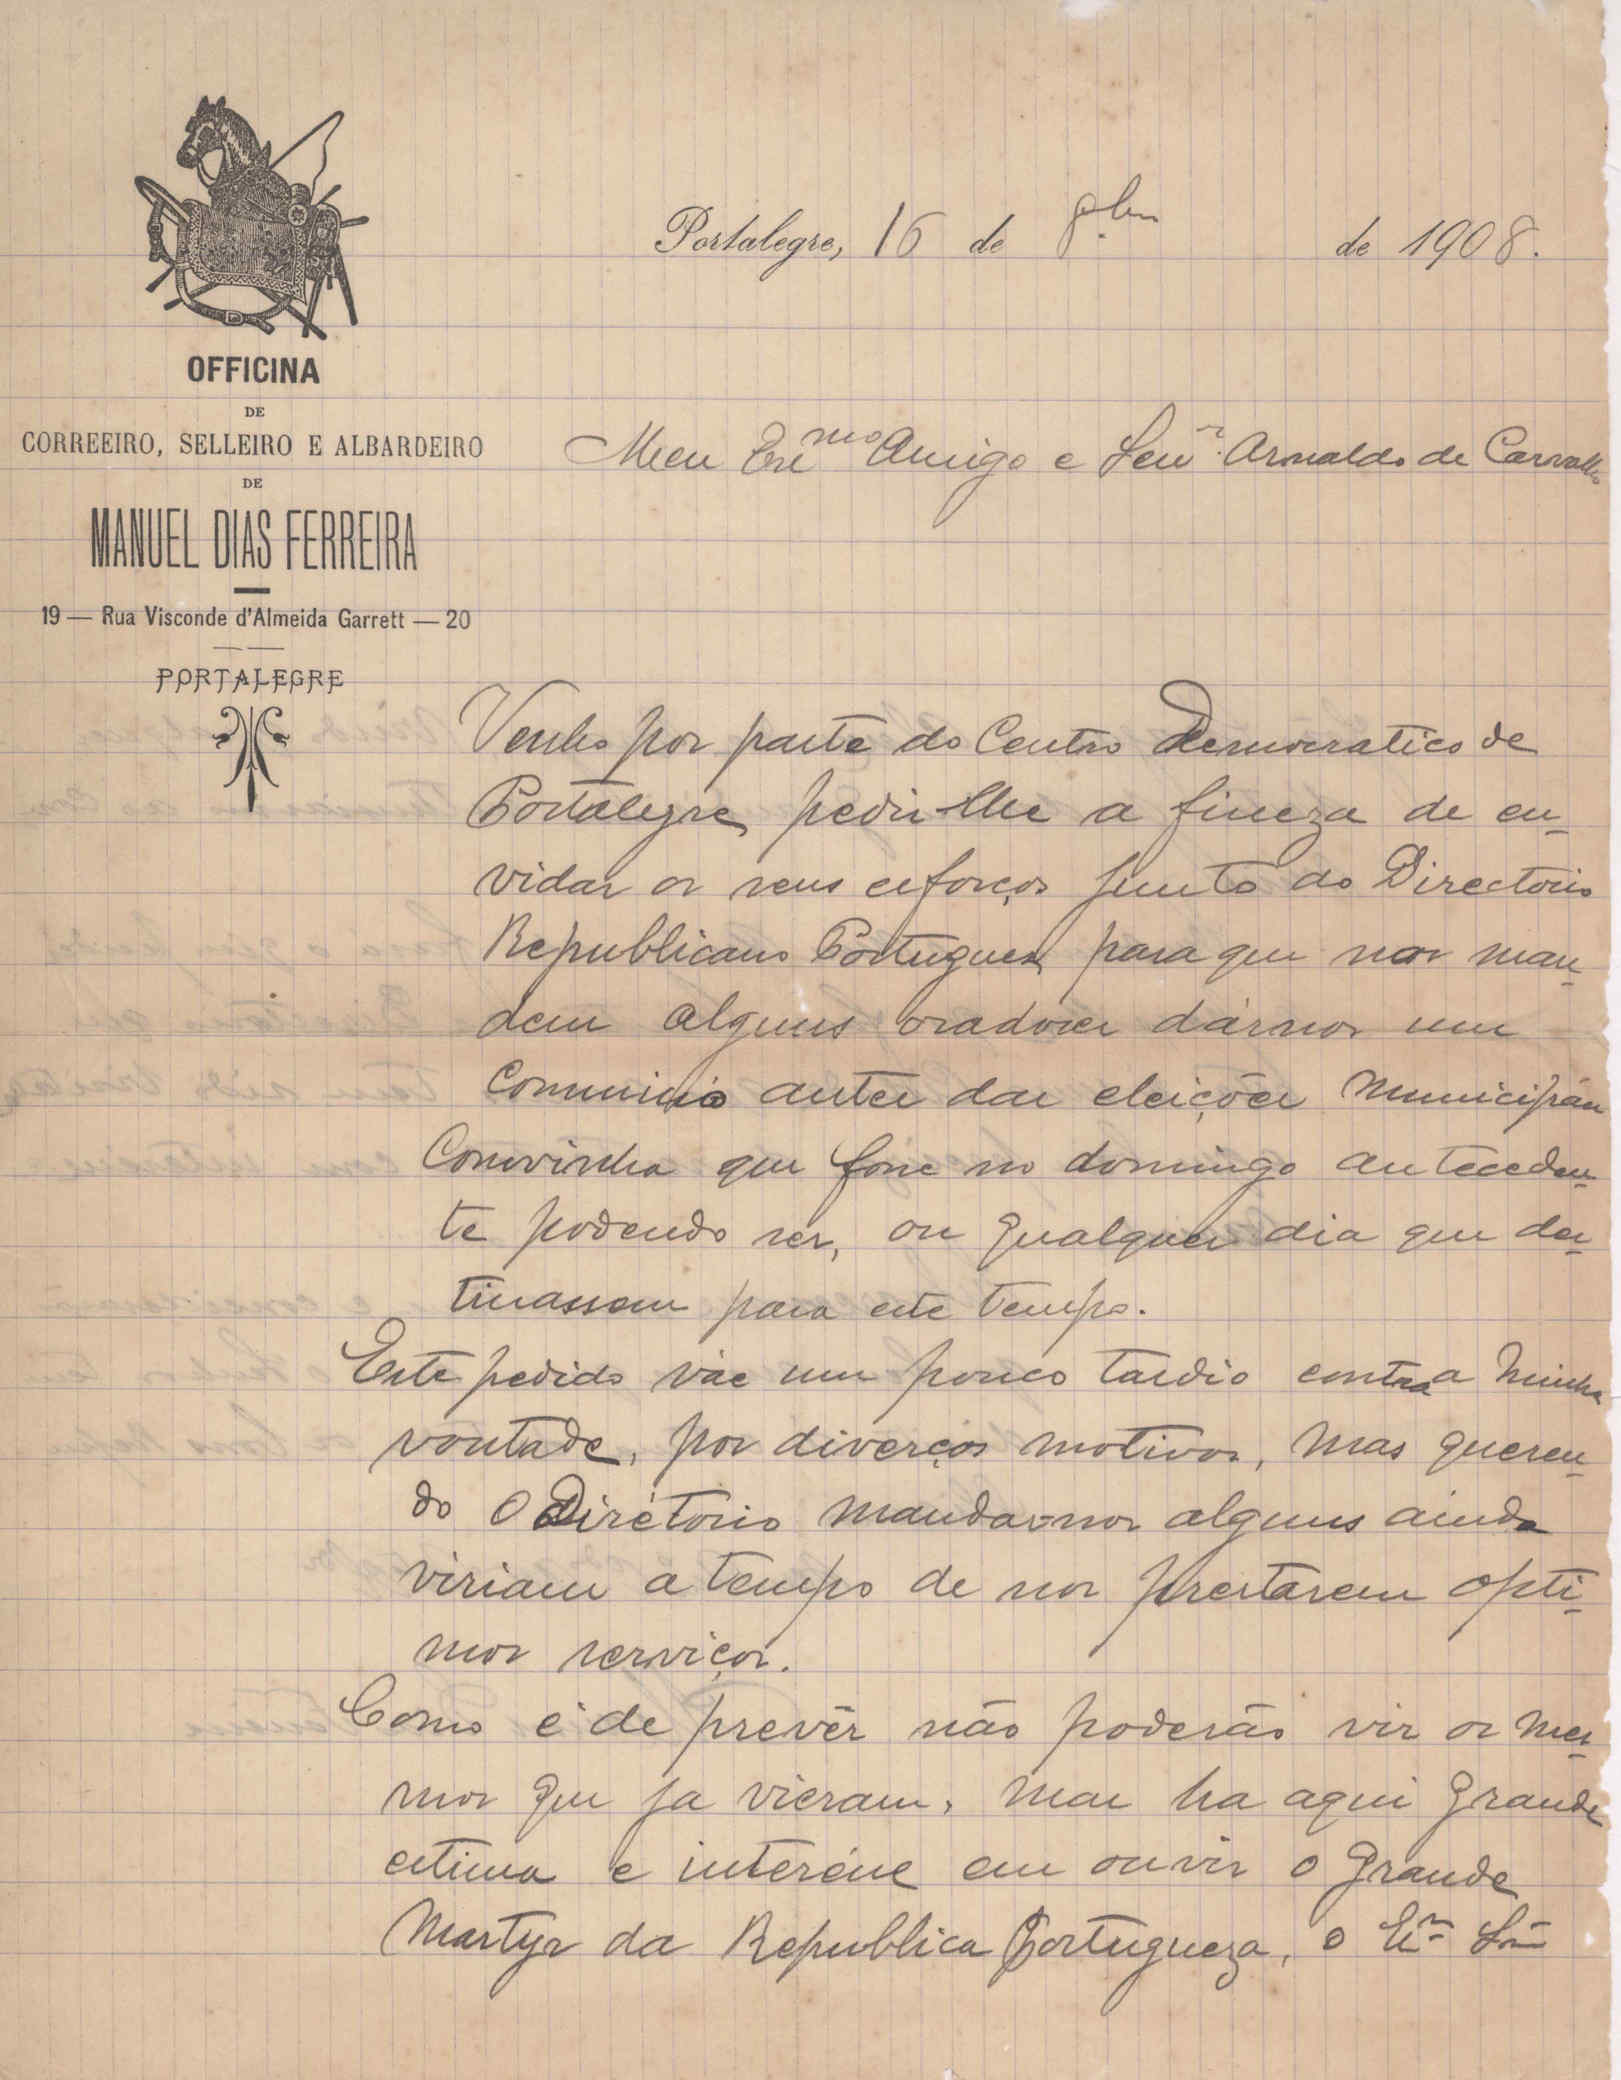 OFFICINA
DE
CORREEIRO, SELLEIRO E ALBARDEIRO
DE
MANUEL DIAS FERREIRA
19 — Rua Visconde d'Almeida Garrett — 20
PORTALEGRE
Portalegre, 16 de 8.bro de 1908.
Meu Exmo Amigo e Senr. Arnaldo de Carvalho
Venho por parte do Centro Democratico de
Portalegre pedir-lhe a fineza de en-
vidar os seus esforços junto do Directorio
Republicano Portuguez para que nos man-
dem alguns oradores dárnos um
Comunicio antes das eleições Municipáes
Convinha que fosse no domingo anteceden-
te podendo ser, ou qualquer dia que des-
tinassem para este tempo.
Este pedido váe um pouco tardio contra a minha
vontade, por diverços motivos, mas queren-
do o Dirétorio mandarnos alguns ainda
viriam a tempo de nos prestarem opti-
mos serviços.
Como é de prevêr não poderão vir os mes-
mos que ja vieram, mas ha aqui grande
estima e interésse em ouvir o grande
Martyr da Republica Portugueza, o Exmo Snr